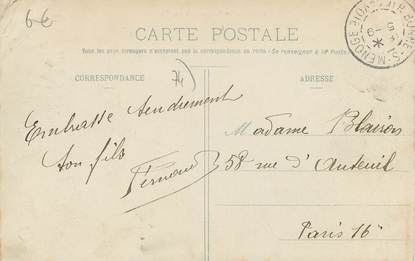 6€
CARTE POSTALE
Tous les pays étrangers n'acceptent pas la correspondance au recto. (Se renseigner à la Poste)
CORRESPONDANCE
74
ADRESSE
Embrasse tendrement
ton fils
Fernand
Madame Blaison
58 rue d'Auteuil
Paris 16e